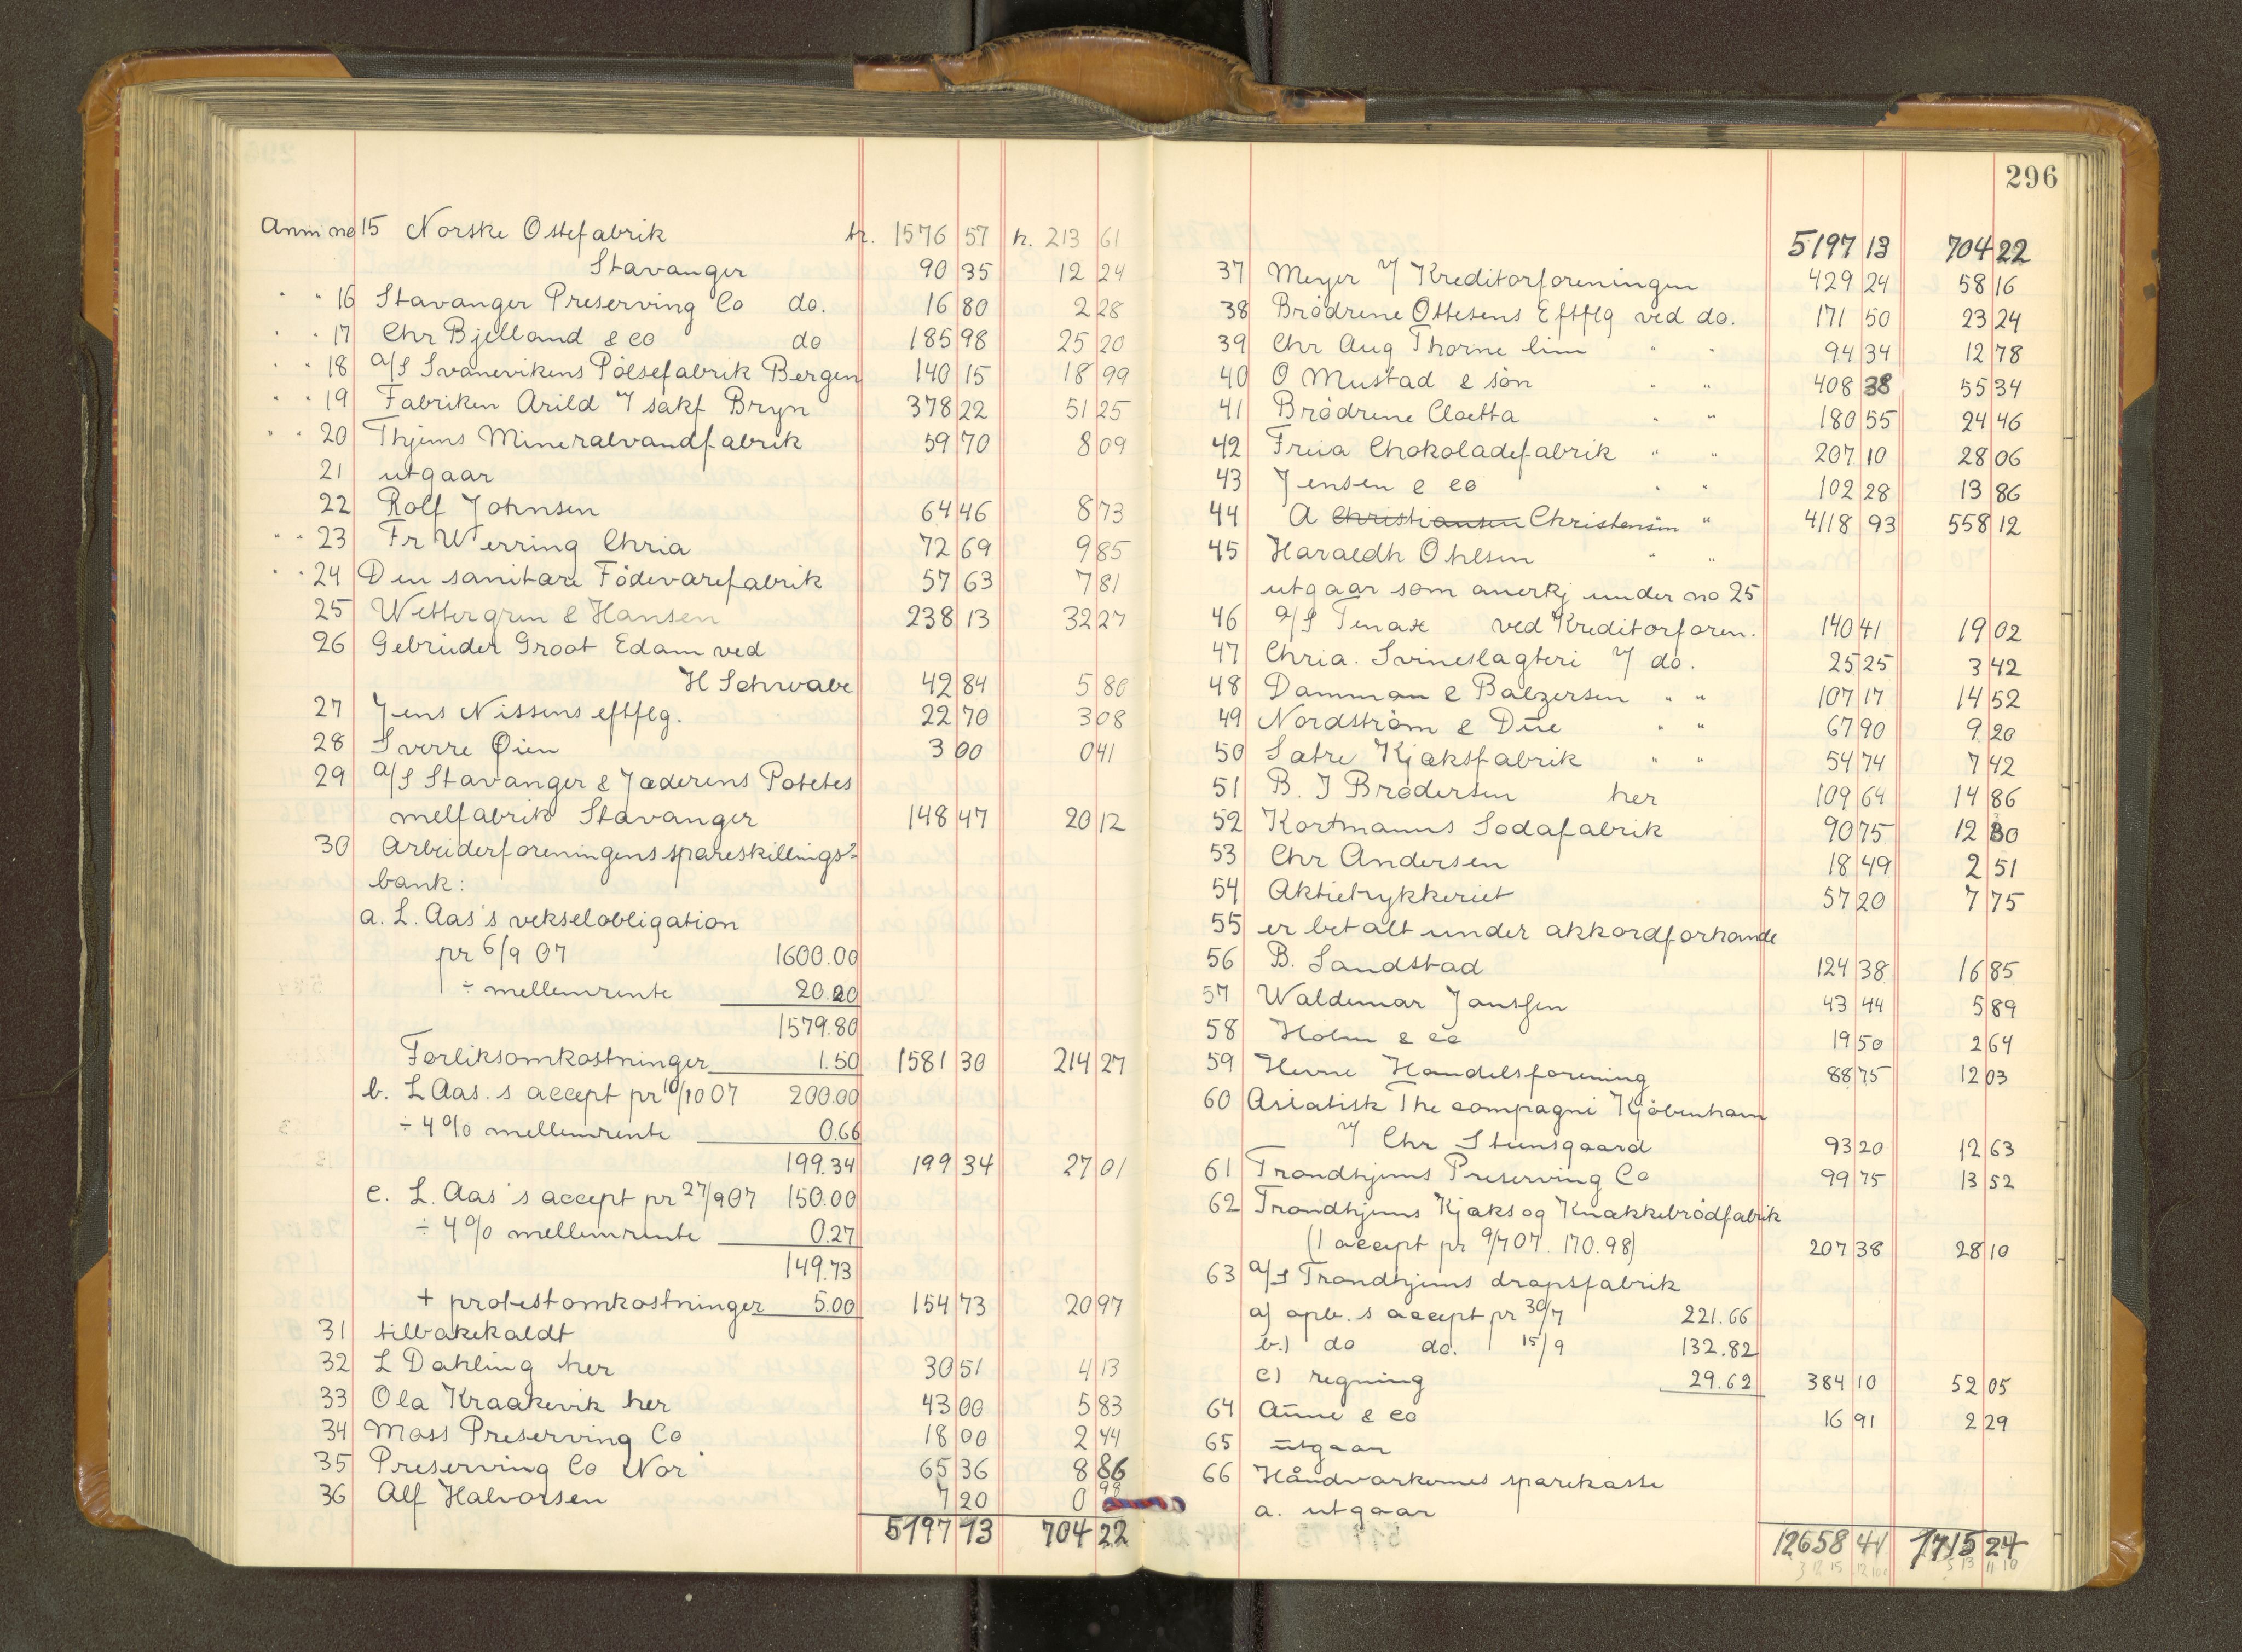 Anm no 15 Norske Ostefabrik kr. 1576 57 kr. 213 61
Stavanger 90 35 12 24
" " 16 Stavanger Preserving Co do. 16 80 2 28
" " 17 Chr Bjelland & co do 185 98 25 20
" " 18 a/s Svanevikens Pölsefabrik Bergen 140 15 18 99
" " 19 Fabriken Arild v/ sakf Bryn 378 22 51 25
" " 20 Thjems Mineralvandfabrik 59 70 8 09
21 utgaar
22 Rolf Johnsen 64 46 8 73
" " 23 Fr Werring Chria 72 69 9 85
" " 24 Den sanitære Födevarefabrik 57 63 7 81
25 Wettergren & Hansen 238 13 32 27
26 Gebrüder Groot Edam ved
H Schwabe 42 84 5 80
27 Jens Nissens eftflg. 22 70 3 08
28 Sverre Øien 3 00 0 41
29 a/s Stavanger & Jæderens Potetes
melfabrik Stavanger 148 47 20 12
30 Arbeiderforeningens spareskillings-
bank:
a. L. Aas's vekselobligation
pr 6/9 07 1600.00
÷ mellemrente 20.20
1579.80
Forliksomkostninger 1.50 1581 30 214 27
b. L Aas.s accept pr 10/10 07 200.00
÷ 4% mellemrente 0.66
199.34 199 34 27 01
c. L. Aas's accept pr 27/9 07 150.00
÷ 4% mellemrente 0.27
149.73
+ protestomkostninger 5.00 154 73 20 97
31 tilbakekaldt
32 L Dahling her 30 51 4 13
33 Ola Kraakevik her 43 00 5 83
34 Moss Preserving Co 18 00 2 44
35 Preserving Co Nor 65 36 8 86
36 Alf Halvorsen 7 20 0 98
5197 13 704 22
296
5197 13 704 22
37 Meyer v/ Kreditorforeningen 429 24 58 16
38 Brödrene Ottesens Eftflg ved do. 171 50 23 24
39 Chr Aug Thorne lim " " 94 34 12 78
40 O Mustad & sön " " 408 38 55 34
41 Brödrene Cloetta " " 180 55 24 46
42 Freia Chokoladefabrik " " 207 10 28 06
43 Jensen & co " " 102 28 13 86
44 A Christiansen Christensen " 4118 93 558 12
45 Haraldh Ohlsen " "
utgaar som anerkj under no 25
46 a/s Tenax ved Kreditorforen. 140 41 19 02
47 Chria. Svineslagteri v/ do. 25 25 3 42
48 Damman & Balzersen " " 107 17 14 52
49 Nordström & Düe " " 67 90 9 20
50 Sætre Kjæksfabrik " " 54 74 7 42
51 B. J Brodersen her 109 64 14 86
52 Kortmanns Sodafabrik 90 75 12 30
53 Chr Andersen 18 49 2 51
54 Aktietrykkeriet 57 20 7 75
55 er betalt under akkordforhande
56 B. Landstad 124 38 16 85
57 Waldemar Janssen 43 44 5 89
58 Holm & co 19 50 2 64
59 Hevne Handelsforening 88 75 12 03
60 Asiatisk The compagni Kjöbenhavn
v/ Chr Steensgaard 93 20 12 63
61 Trondhjems Preserving Co 99 75 13 52
62 Trondhjems Kjæks og Knækkebrödfabrik
(1 accept pr 9/7 07. 170.98) 207 38 28 10
63 a/s Trondhjems dropsfabrik
a) opb.s accept pr 30/7 221.66
b.) do do. 15/9 132.82
c) regning 29.62 384 10 52 05
64 Aune & co 16 91 2 29
65 utgaar
66 Håndverkernes sparekasse
a. utgaar
12658 41 1715 24